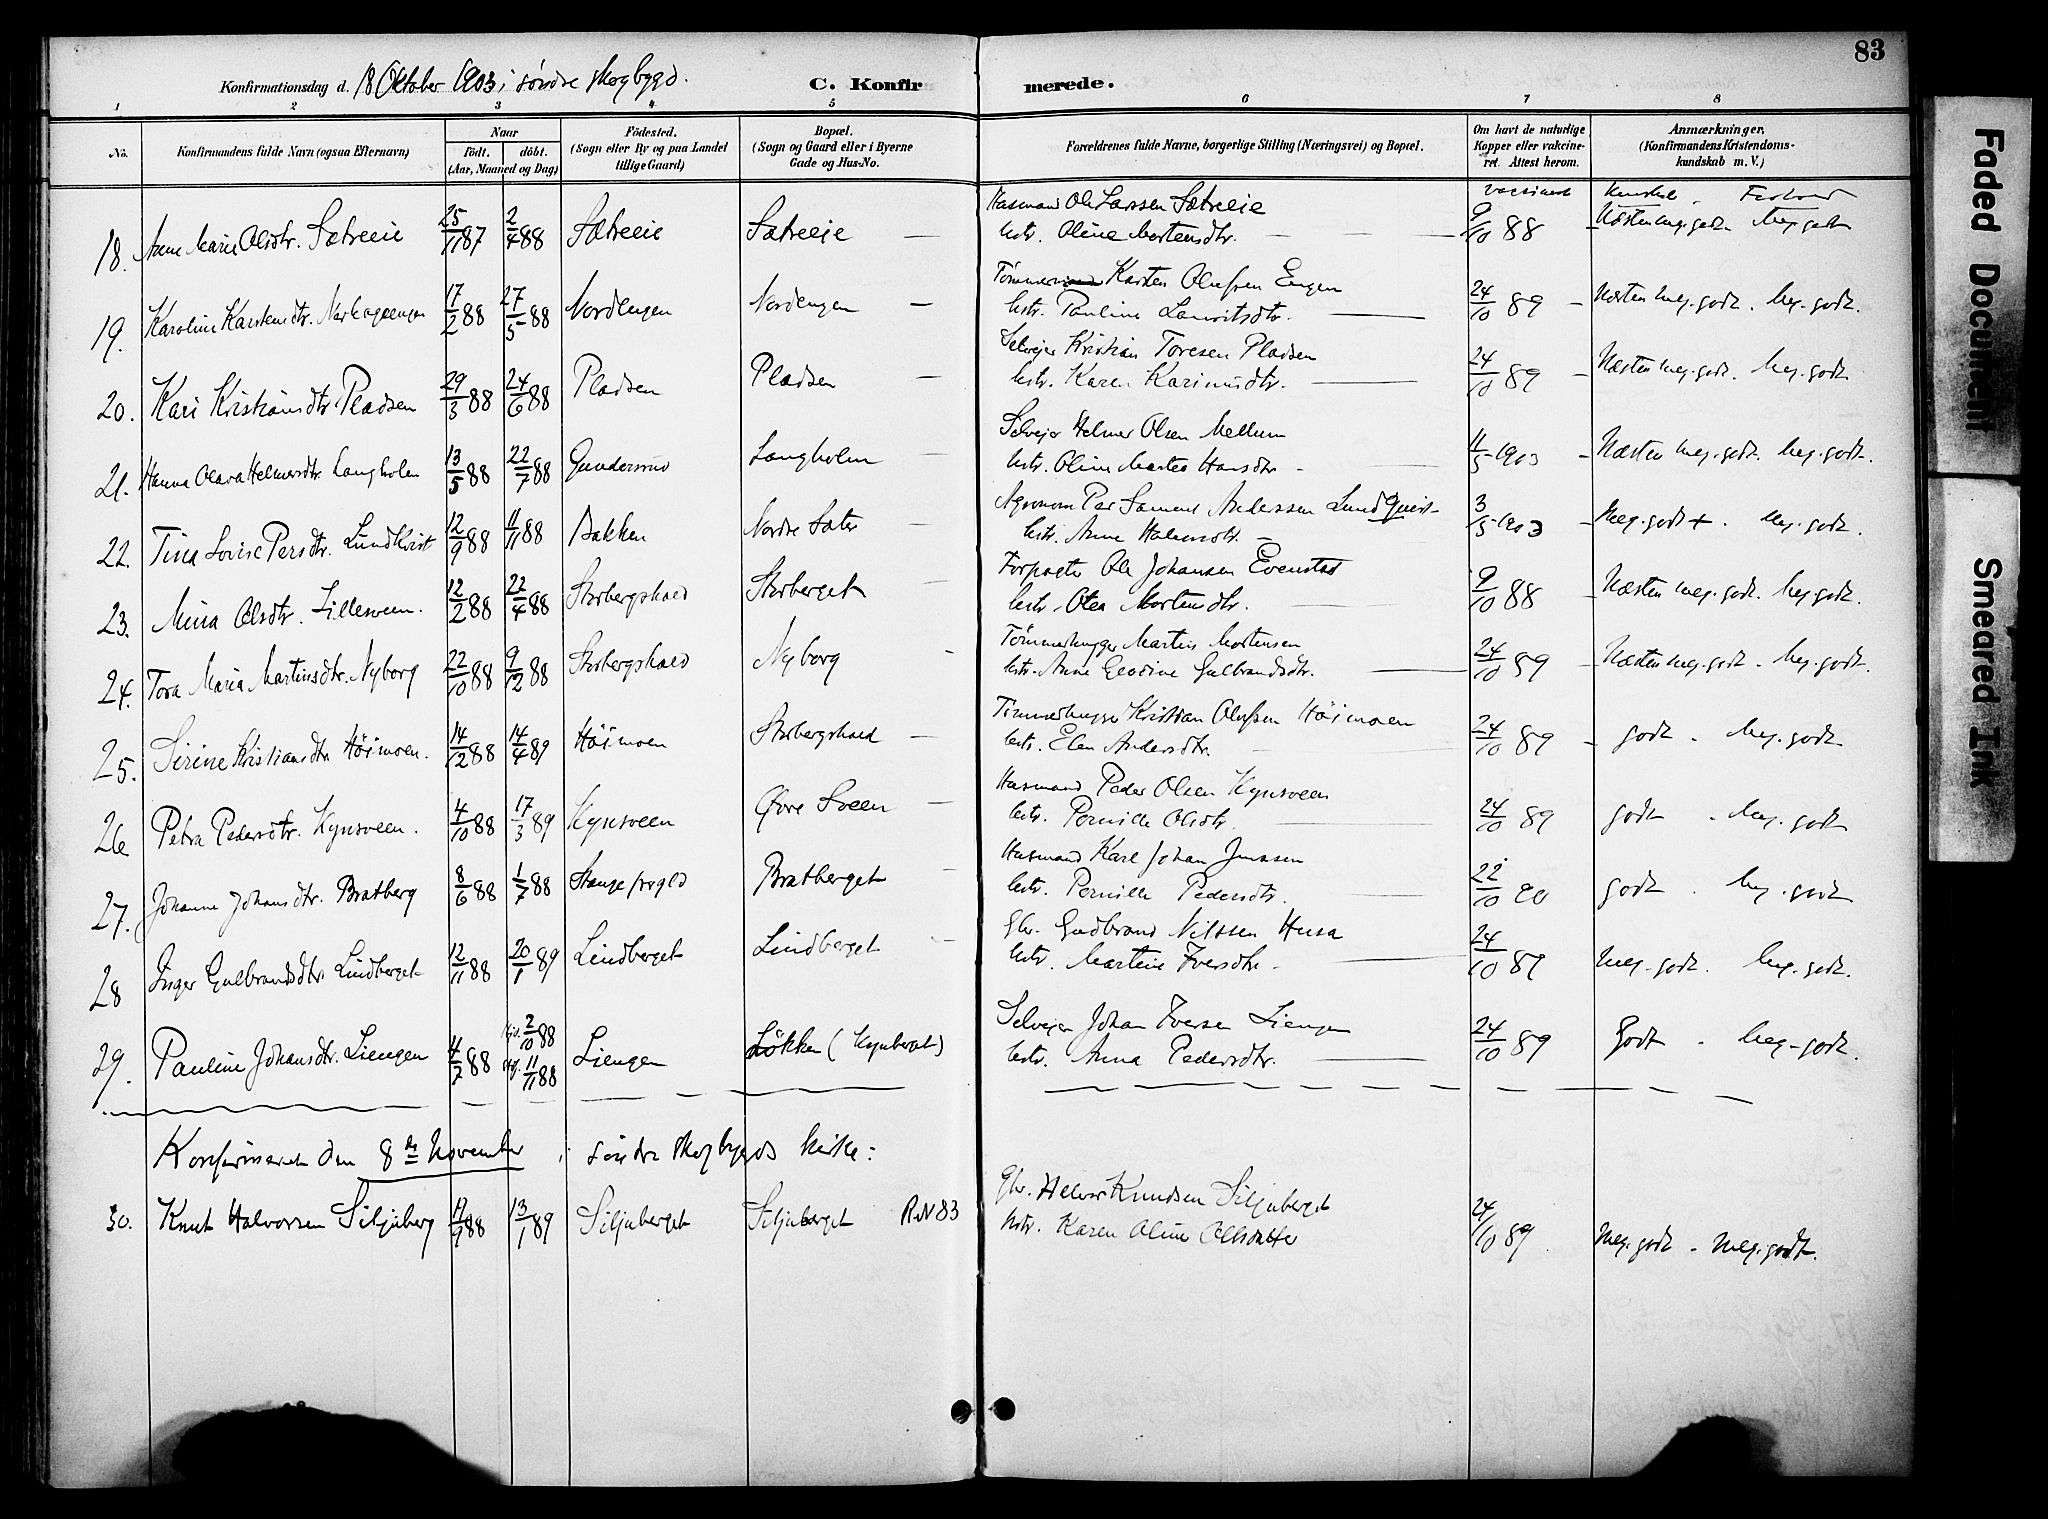 83
Konfirmationsdag d. 18 Oktober 1903 i søndre skogbygd. C. Konfirmerede.
1 2 3 4 5 6 7 8
No. Konfirmandens fulde Navn (ogsaa Efternavn) Naar Födt. döbt. (Aar, Maaned og Dag) Födested. (Sogn eller By og paa Landet tillige Gaard) Bopæl. (Sogn og Gaard eller i Byerne Gade og Hus-No. Forældrenes fulde Navne, borgerlige Stilling (Næringsvei) og Bopæl. Om havt de naturlige Kopper eller vakcineret. Attest herom. Anmærkninger. (Konfirmandens Kristendomskundskab m. V.)
Husmand Ole Larsen Sætreeie
18. Anne Marie Olsdtr. Sætreeie 25/11 87 2/4 88 Sætreeie Sætreeie — hstr. Oline Mortensdtr. — 9/10 88 — Næsten meg. godt. Meg. godt
Karsten Olufsen Engen
19. Karoline Karstensdtr. 17/2 88 27/5 88 Nordengen Nordengen — hstr. Pauline Lauritsdtr. — 24/10 89 — Næsten meg. godt. Meg. godt.
Selveier Kristian Toresen Pladsen
20. Kari Kristiansdtr. Pladsen 29/3 88 24/6 88 Pladsen Pladsen — hstr. Karen — 24/10 89 — Næsten meg. godt. Meg. godt
Selveier Helmer Olsen Mellum
21. Hanna Olava Helmersdtr. Langholen 13/5 88 22/7 88 Gundersrud Langholen — hstr. Oline Martea Hansdtr — 11/5 1903 — Næsten meg. godt. Meg. godt.
Agronom Per Samuel Anderssen Lundquist
22. Tina Lovise Persdtr. Lundkvist 12/9 88 11/11 88 Bakken Nordre Sæter — hstr. Anne — 3/5 1903 — Meg. godt +. Meg. godt.
Forpagter Ole Johansen Evenstad
23. Mina Olsdtr. Lillesveen. 12/2 88 22/4 88 Storbergshaed Storberget — hstr. Otea Mortensdtr. — 9/10 88 — Næsten meg. godt. Meg godt.
Tømmerhugger Martin Mortensen
24. Tora Maria Martinsdtr. Nyborg 22/10 88 9/12 88 Storbergshaed Nyborg - hstr. Anne Gulbrandsdtr. — 24/10 89 — Næsten meg. godt. Meg. godt.
Tømmerhugger Kristian Olufsen Höimoen
25. Sirine Kristiansdtr Höimoen. 14/12 88 14/4 89 Höimoen Storbergshaed — hstr. Elen Andersdtr. — 24/10 89 — godt. Meg. godt
Husmand Peder Olsen Kynsveen
26 Petra Pedersdtr. Kynsveen. 4/10 88 17/3 89 Kynsveen Øvre Sveen — hstr. Pernille Olsdtr. — 24/10 89 godt. Meg. godt
Husmand Karl Johan
27. Johanne Johansdtr. Bratberg 8/6 88 1/7 88 Stange Bratberget — hstr. Pernille Pedersdtr. — 22/10 godt. Meg. godt
Gbr. Gudbrand Nilssen Husa
28 Inger Gulbrandsdtr. Lindberget 12/11 88 20/1 89 Lindberget Lindberget — hstr. Martine Iversdtr. — 24/10 89 Meg. godt. Meg. godt.
Selveier Johan Iversen Liengen
29. Pauline Johansdtr. Liengen 4/7 88 2/10 88 11/11 88 Liengen Løkken (Kynberget) hstr. Anna Pedersdtr. — 24/10 89 Godt. Meg. godt.
Konfirmeret den 8de November i søndre skogbygds kirke:
Gbr. Halvor Knudsen Siljuberget
30. Knut Halvorsen Siljuberg 17/9 88 13/1 89 Siljuberget Siljuberget hstr. Karen Oline Olsdatter 24/10 89 Meg. godt. Meg. godt.
Faded Document
Smeared Ink